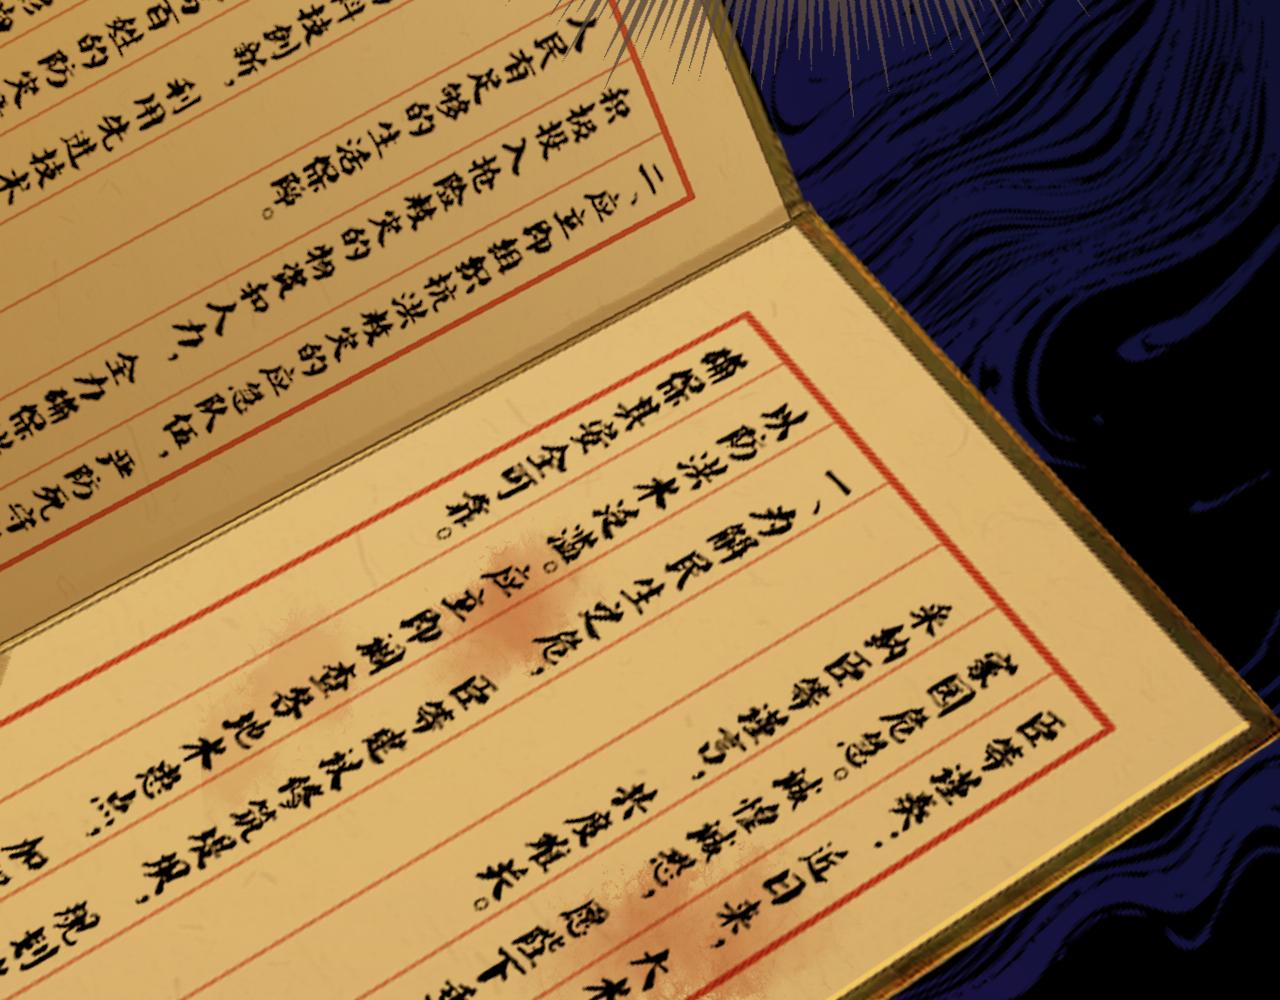 臣等谨奏:近日来,大水
家国危急。诚惶诚恐,愿陛下
采纳臣等谨言,共度难关。
一、为解民生之危,臣等建议修筑堤坝,规划
以防洪水泛滥。应立即调查各地水患点,加
确保其安全可靠。
二、应立即组织抗洪救灾的应急队伍,严防死守
积极投入抢险救灾的物资和人力,全力确保
人民有足够的生活保障。
科技创新,利用先进技术
百姓的防灾